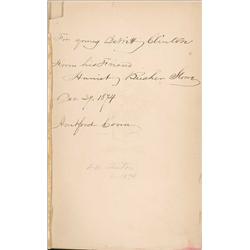 For young DeWitt Clinton
from his Friend
Harriet Beecher Stowe
Dec 29, 1874
Hartford Conn
Clinton
1874